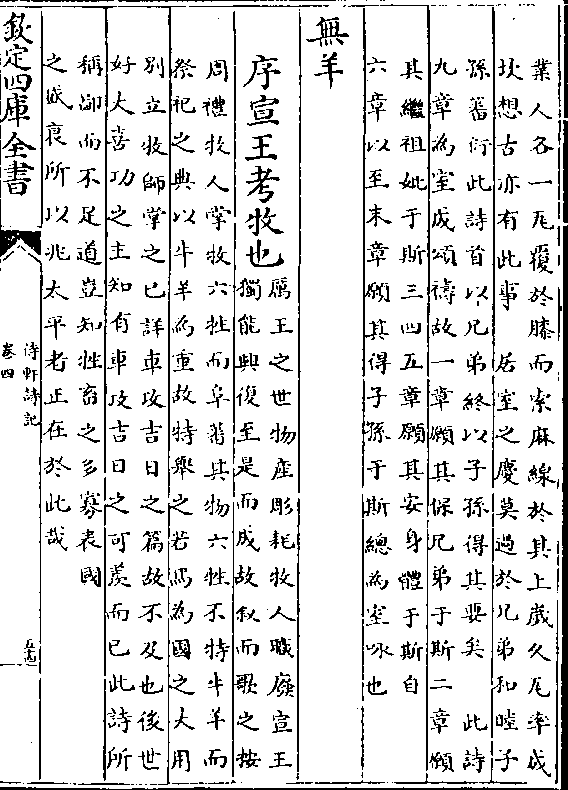 業人各一瓦覆於膝而索麻線於其上歲久瓦率成
坎想古亦有此事　居室之慶莫過於兄弟和睦子
孫蕃衍此詩首以兄弟終以子孫得其要矣　此詩
九章為室成頌禱故一章願其保兄弟于斯二章願
其繼祖妣于斯三四五章願其安身體于斯自
六章以至末章願其得子孫于斯總為室咏也
無羊
序宣王考牧也
厲王之世物產彫耗牧人職廢宣王
獨能興復至是而成故叙而歌之按
周禮牧人掌牧六牲而阜蕃其物六牲不特牛羊而
祭祀之典以牛羊為重故特舉之若馬為國之大用
別立牧師掌之已詳車攻吉日之篇故不及也後世
好大喜功之主知有車攻吉日之可羨而已此詩所
稱鄙而不足道豈知牲畜之多寡表國
之盛衰所以兆太平者正在於此哉
欽定四庫全書
待軒詩記
卷四